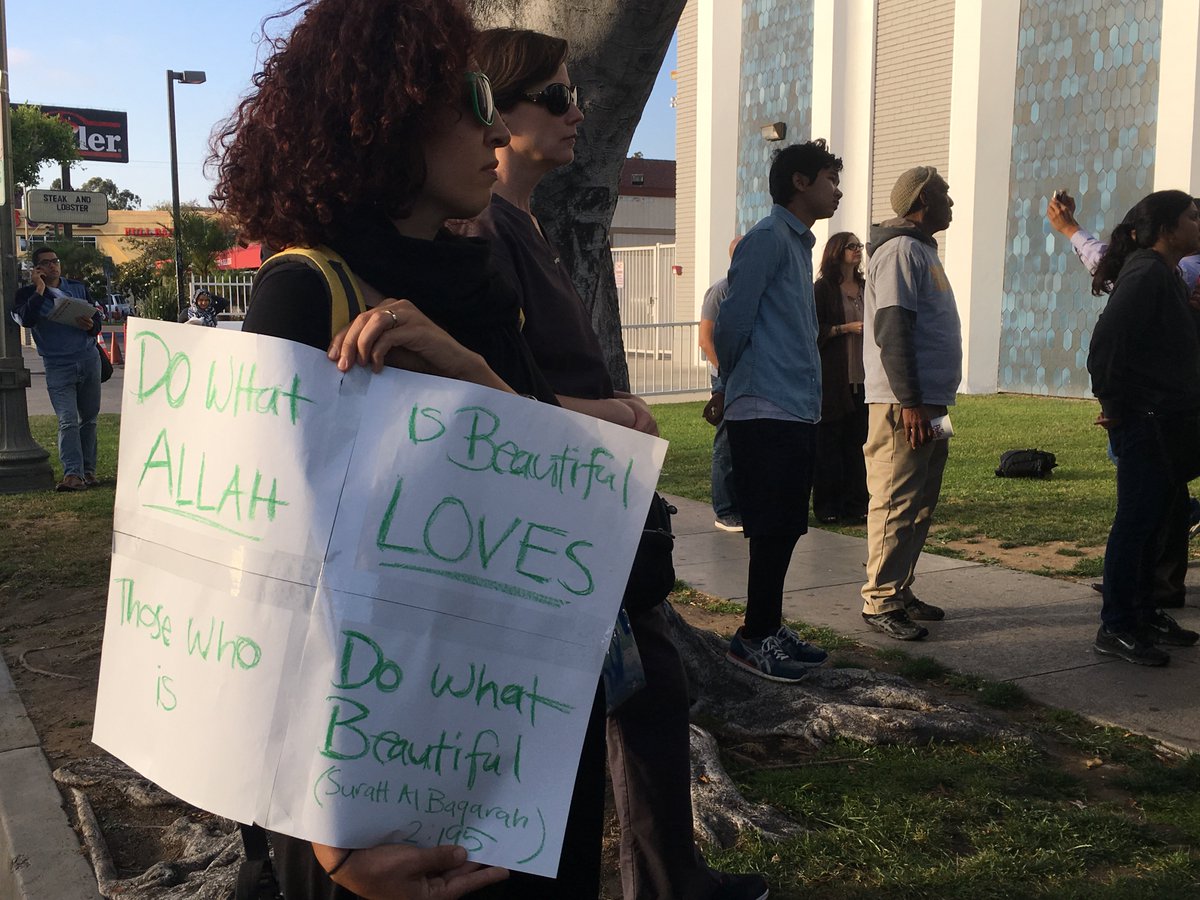 DO WHat is Beautiful
ALLAH LOVES
Those WHo Do what
is Beautiful
(Suratt Al Baqarah
2.195)
ler
STEAK AND
LOBSTER